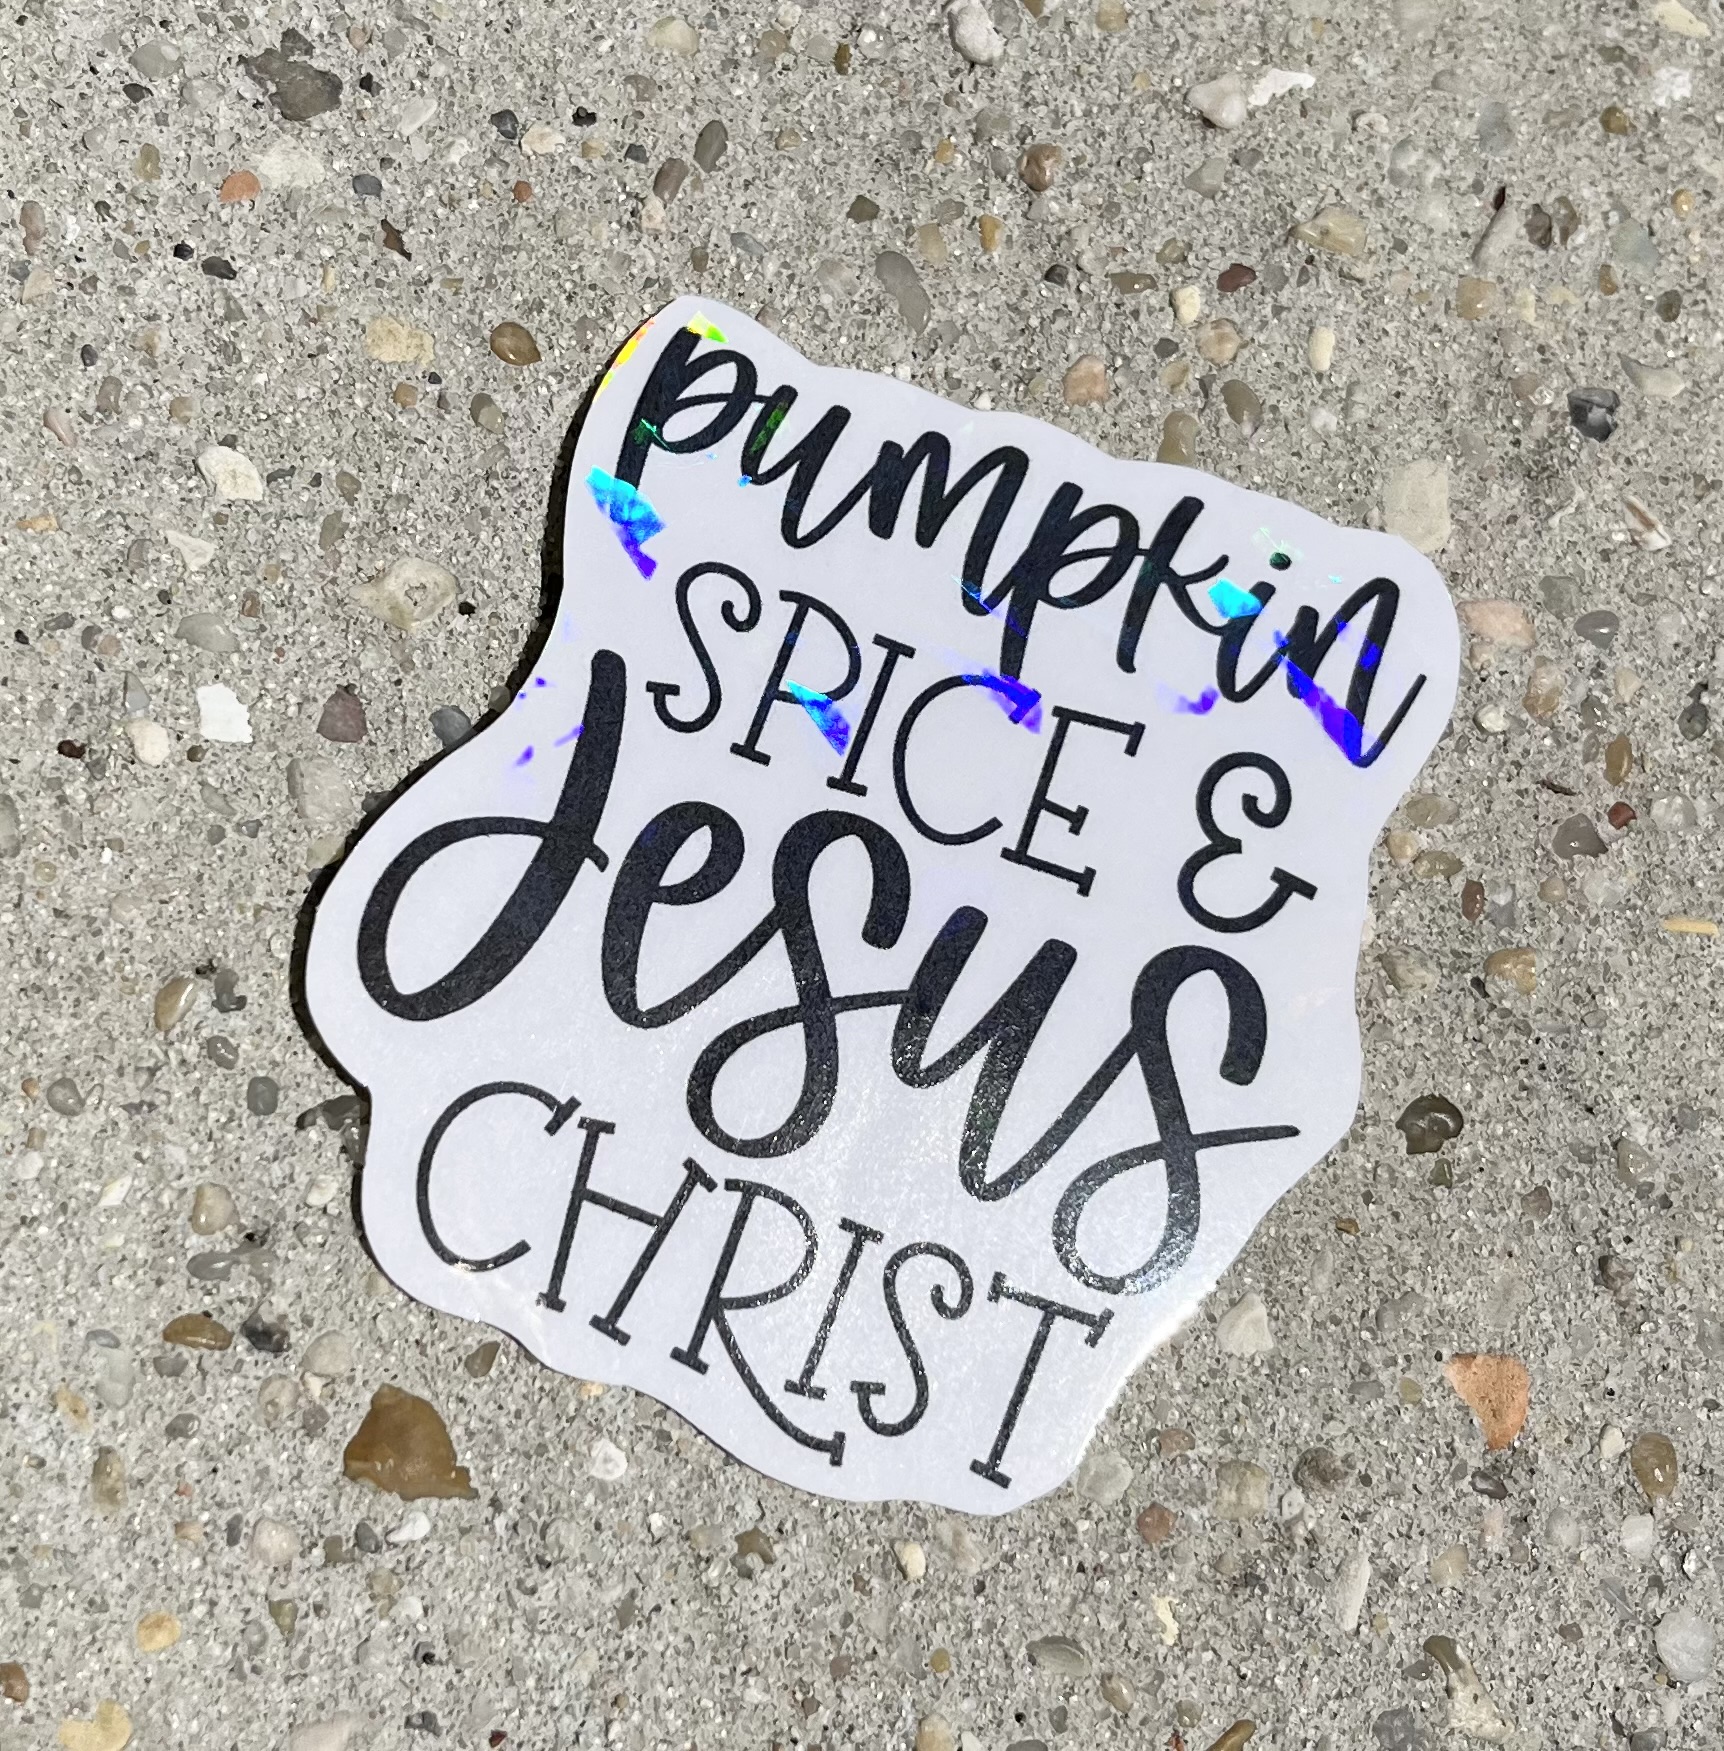 pumpkin
SPICE &
Jesus
CHRIST